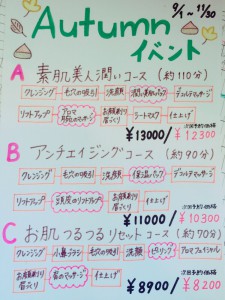 9/1~11/30
Autumn
イベント
A 素肌美人潤いコース (約110分)
クレンジング 毛穴の吸引 洗顔 潤い美肌パック デコルテマッサージ
リフトアップ アロマ マッサージ お顔剃り 眉づくり ヒートマスク 仕上げ
¥13000/¥12300
B アンチエイジングコース (約90分)
クレンジング 毛穴の吸引 洗顔 保湿パック デコルテマッサージ
リフトアップ 頭皮のリフトアップ お顔剃り 眉づくり 仕上げ
¥11000/¥10300
C お肌つるつるリセットコース (約70分)
クレンジング 小鼻ブラシ 毛穴の吸引 洗顔 ピーリング アロマフェイシャル
お顔剃り 眉づくり 首のマッサージ 仕上げ
¥8900/¥8200